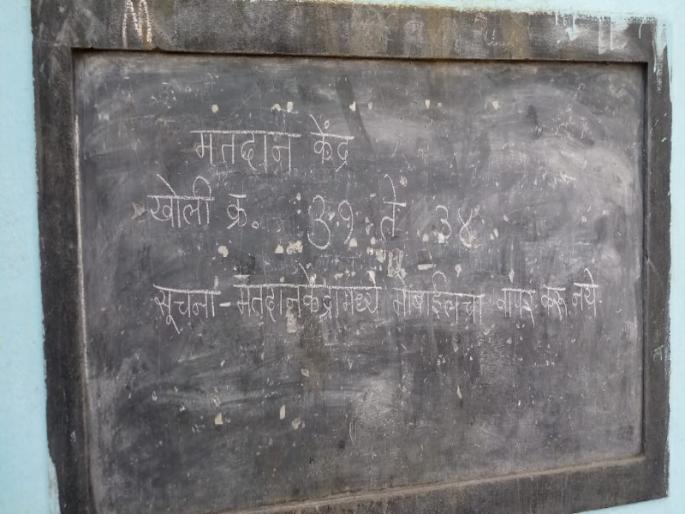 मतदान केंद्र
खोली क्र. ३१ ते ३४
सूचना - मतदानकेंद्रामध्ये मोबाईलचा वापर करू नये.